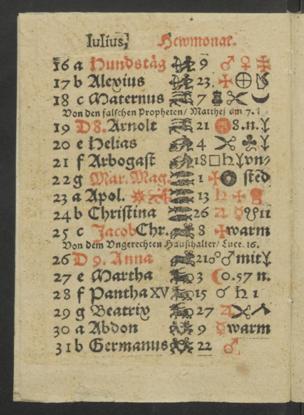 Iulius, Hewmonat.
16 a Hundstäg 9 ♂ ♀ ✠
17 b Alexius 23. ✠ ⊕
18 c Maternus 7 ☾
Von den falschen Propheten/ Matthei am 7.
19 D 8. Arnolt 21 8.n.
20 e Helias 4
21 f Arbogast 18 □ ♄ vn/
22 g Mar. Mag. 1 ✠ sted
23 a Apol. 13 ♄ ✠
24 b Christina 26 ♃ 11
25 c Jacob Chr. 8 ✠ warm
Von dem Vngerechten Haußhalter/ Luce. 16.
26 D 9. Anna 21 ☍ ♂ mit
27 e Martha 3 0.57 n.
28 f Pantha XV 15 ♂ ♄ 1
29 g Beatrix 27 ♃
30 a Abdon 9 ☿ warm
31 b Germanus 22 ♂